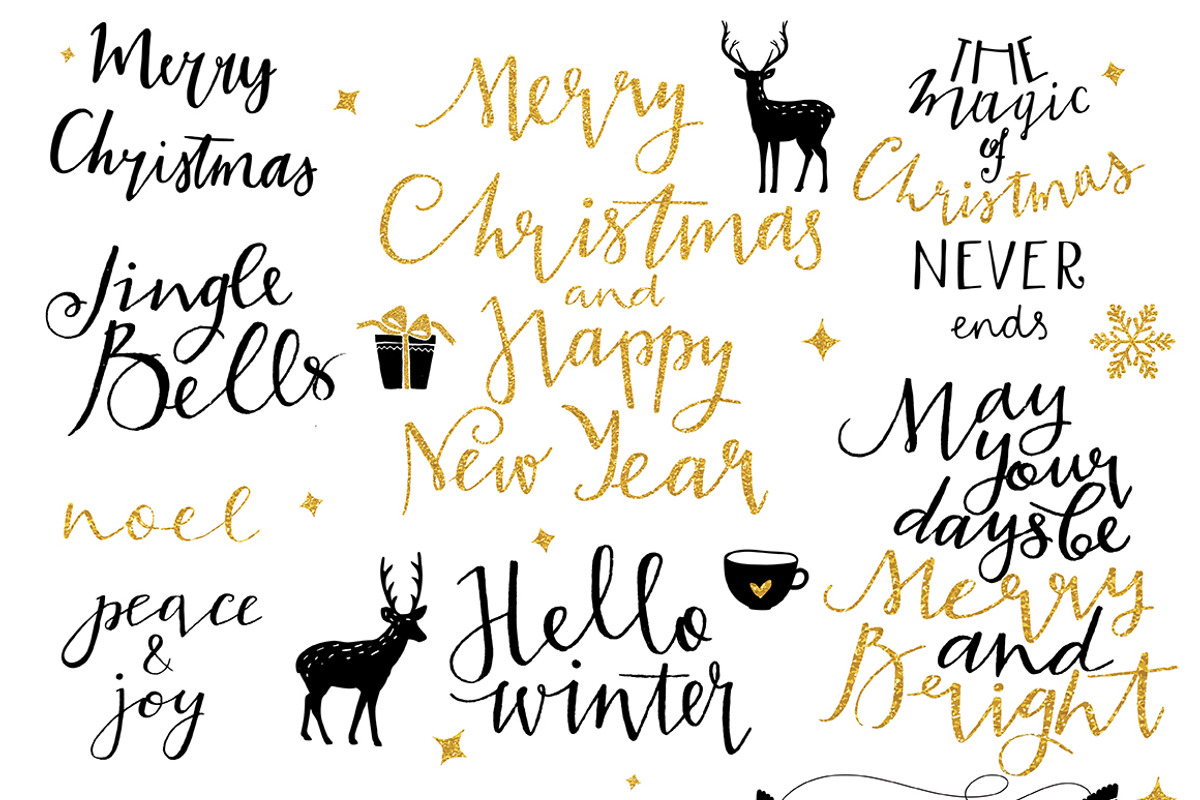 Merry
Christmas
Jingle
Bells
noel
peace
&
joy
Merry
Christmas
and
Happy
New Year
Hello
winter
THE
magic
of
Christmas
NEVER
ends
May
your
days be
Merry
and
Bright